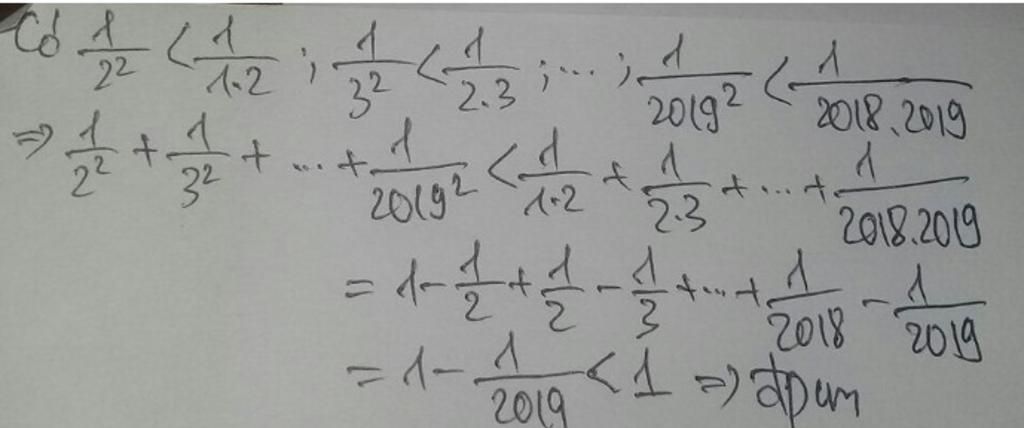 Có 1/2² < 1/1.2 ; 1/3² < 1/2.3 ; ... ; 1/2019² < 1/2018.2019
=> 1/2² + 1/3² + ... + 1/2019² < 1/1.2 + 1/2.3 + ... + 1/2018.2019
= 1 - 1/2 + 1/2 - 1/3 + ... + 1/2018 - 1/2019
= 1 - 1/2019 < 1 => đpcm